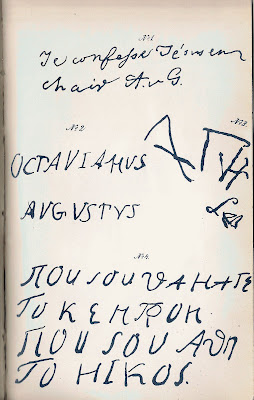 N°1.
Je confesse Jésus en
chair A.v.G.
N°2. N°3.
OCTAVIANUS
AVGVSTVS
N°4.
ΠΟυ ΣΟυ ϑΑΝΑΤΕ
Το ΚΕΝΤΡΟΝ.
ΠΟυ ΣΟυ Αδη
ΤΟ ΝΙΚΟΣ.